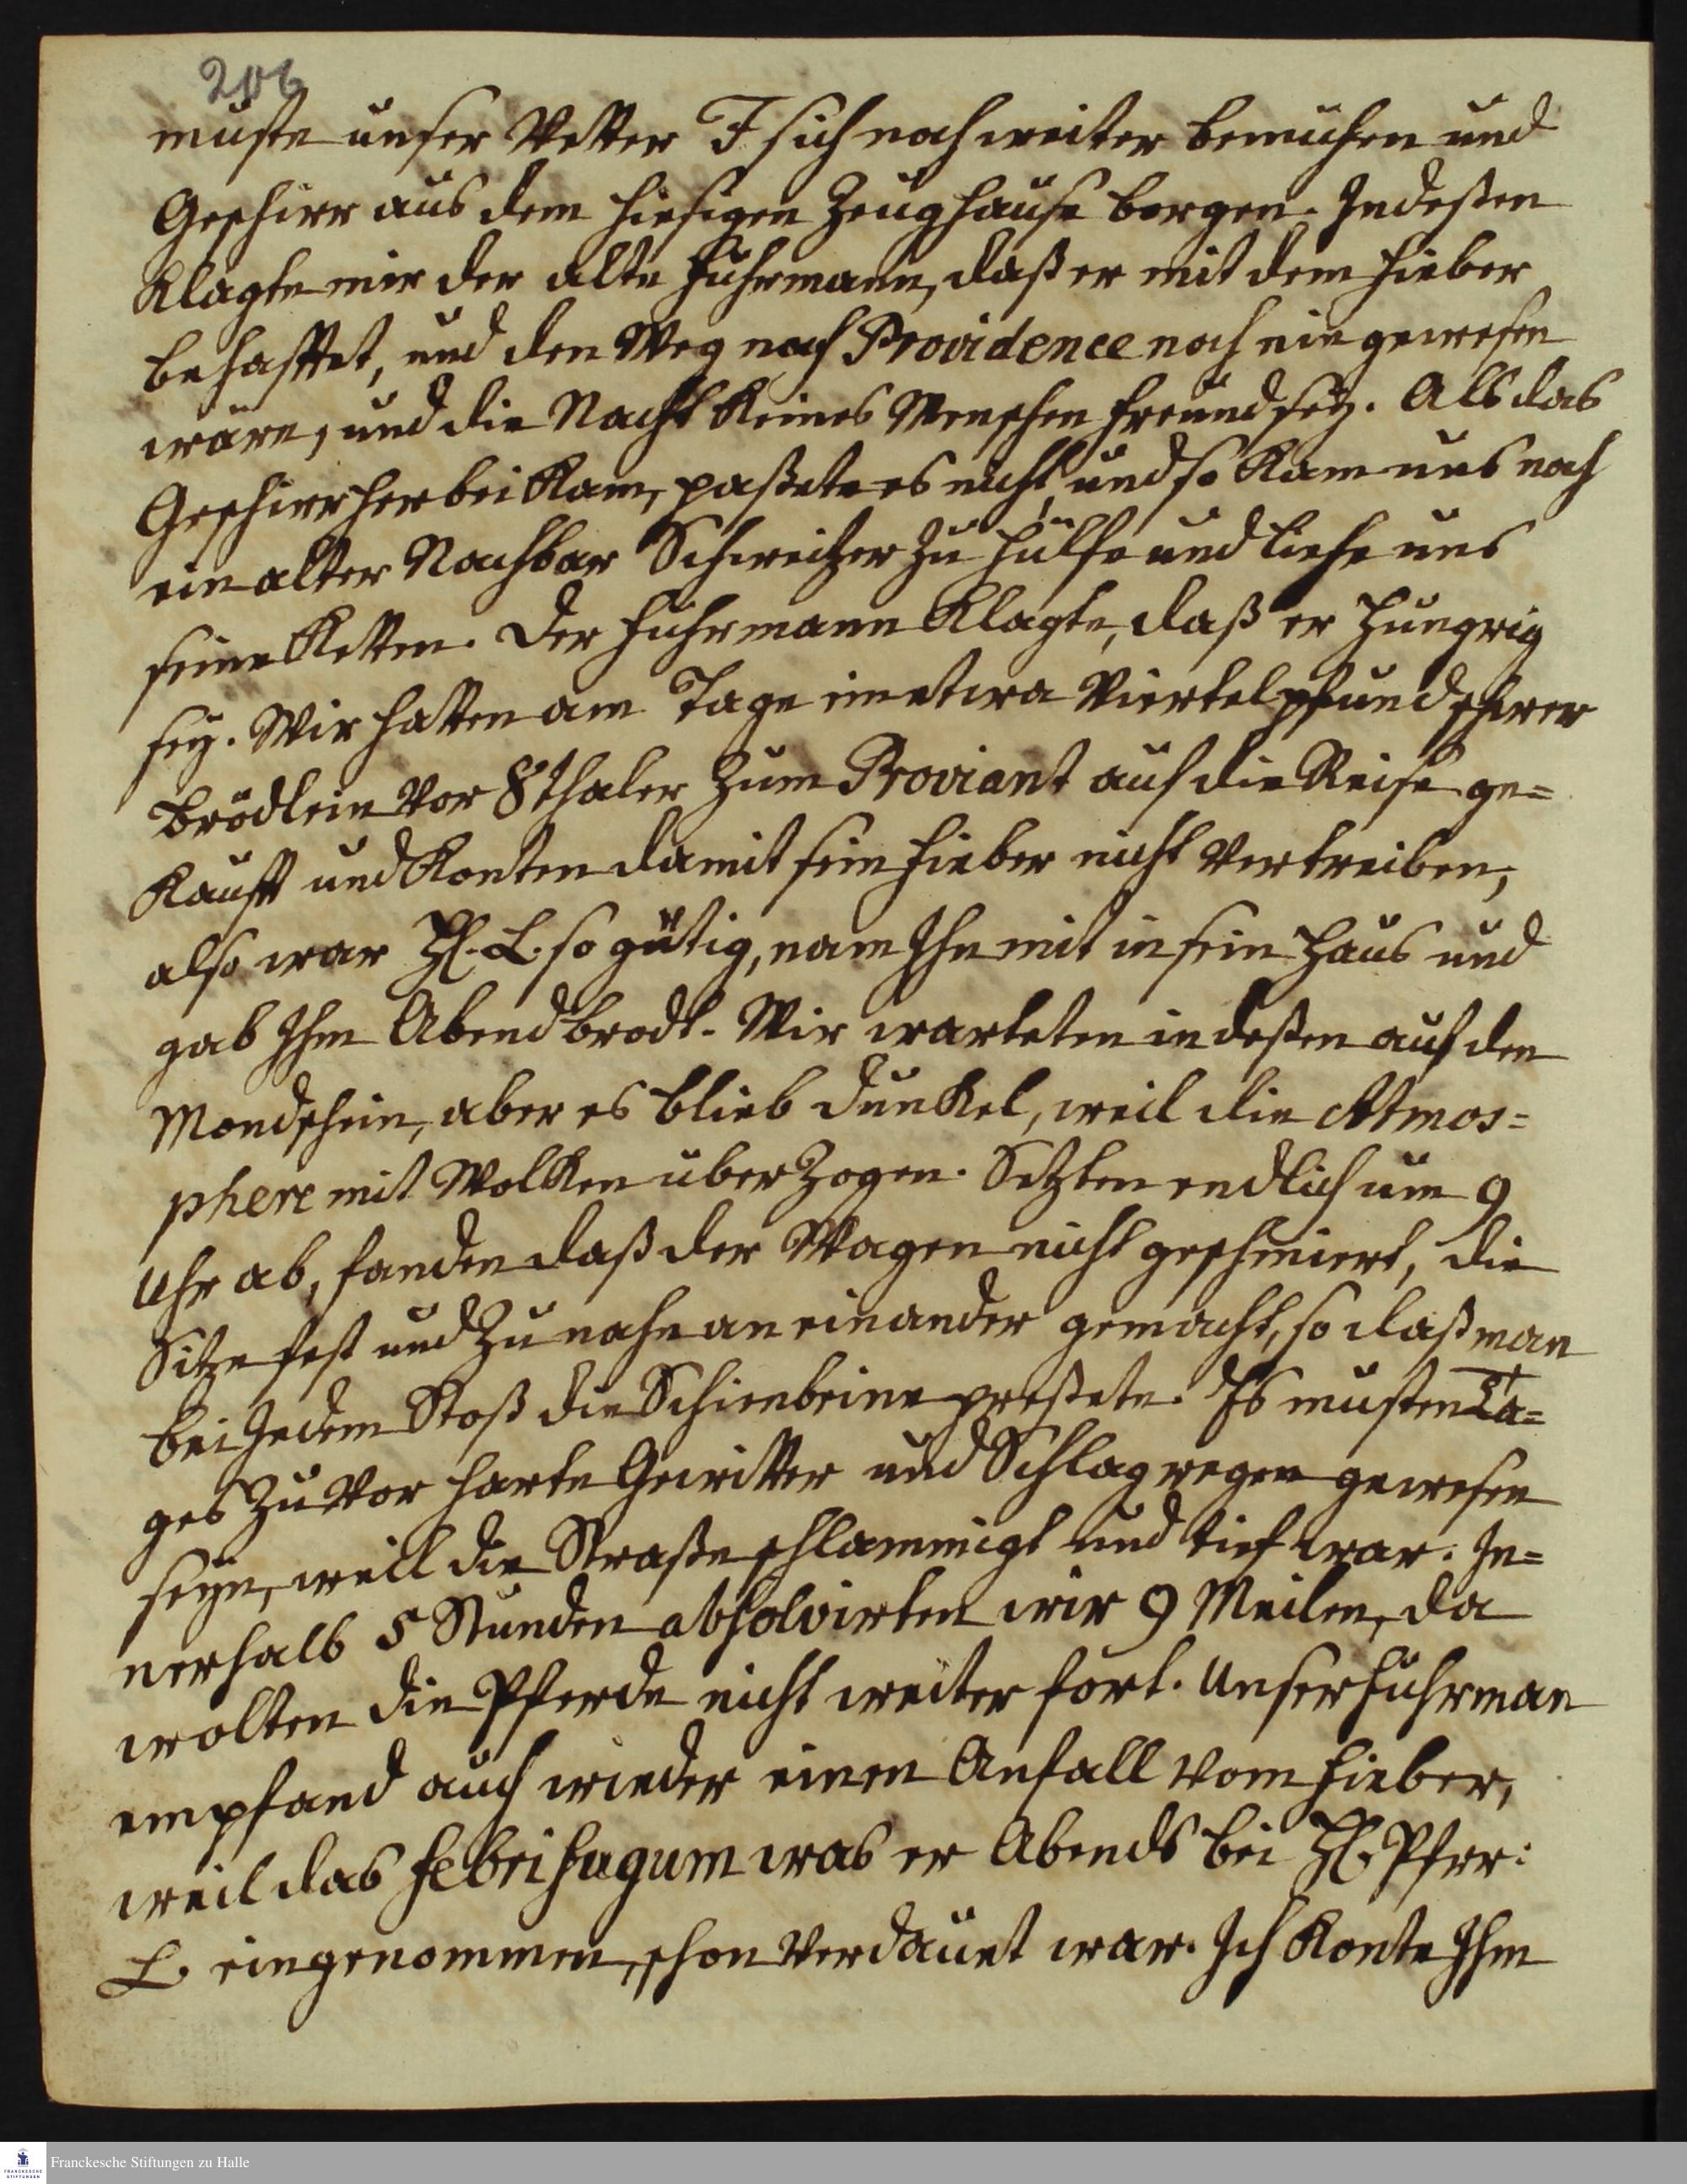 206
muste unser Vetter F sich noch weiter bemühen und
Geschirr aus dem hiesigen Zeughause borgen. Indeßen
Klagte mir der alte Fuhrmann, daß er mit dem Fieber
behafftet, und den Weg nach Providence noch nie gewesen
wäre, und die Nacht Keines Menschen Freund sey. Als das
Geschirr herbei Kam, paßete es nicht, und so Kam uns noch
ein alter Nachbar Schweitzer zu Hülfe und liehe uns
seine Ketten. Der Fuhrmann Klagte, daß er Hungrig
sey. Wir hatten am Tage ein etwa Viertel pfund schwer
brödlein vor 8 thaler zum Proviant auf die Reise ge=
Kaufft und Konten damit sein Fieber nicht vertreiben,
also war H. L. so gütig, nam Ihn mit in sein Haus und
gab Ihm Abendbrodt. Wir warteten indeßen auf den
Mondschein, aber es blieb dunKel, weil die Atmos=
phere mit WolKen überzogen. Setzten endlich um 9
Uhr ab, fanden daß der Wagen nicht geschmiert, die
Sitze fest und zu nahe an einander gemacht, so daß man
bei Jedem Stoß die Schienbeine preßete. Es musten Ta=
ges zuvor harte Gewitter und Schlagregen gewesen
seyn, weil die Straße schlammigt und tief war. In=
nerhalb 5 Stunden absolvirten wir 9 Meilen, da
wolten die Pferde nicht weiter fort. Unser Fuhrman
empfand auch wieder einen Anfall vom Fieber,
weil das Febrifugum was er Abends bei H. Pfrr:
L. eingenommen, schon verdauet war. Ich Konte Ihm
Franckesche Stiftungen zu Halle
FRANCKESCHE
STIFTUNGEN